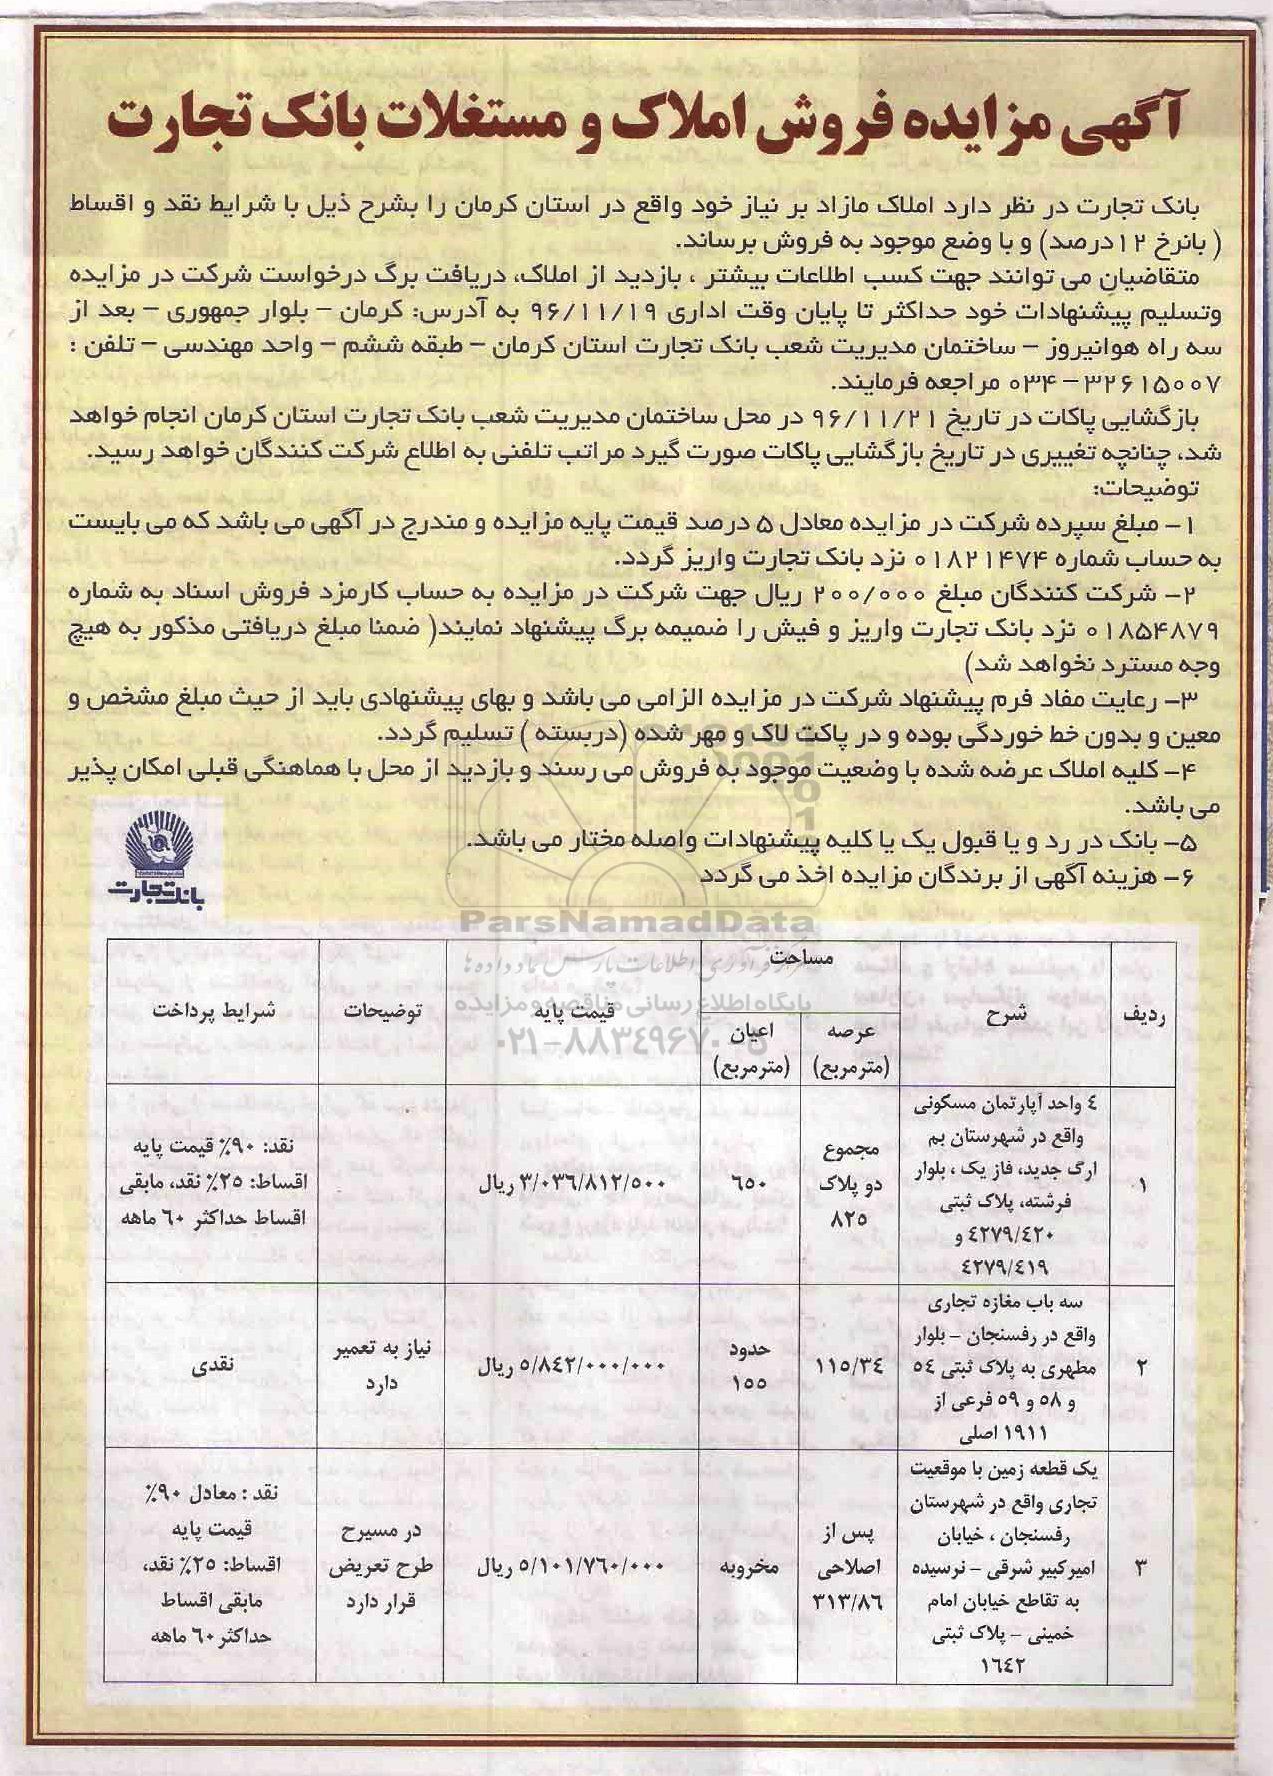 آگهی مزایده فروش املاک و مستغلات بانک تجارت
بانک تجارت در نظر دارد املاک مازاد بر نیاز خود واقع در استان کرمان را بشرح ذیل با شرایط نقد و اقساط
( بانرخ ۱۲درصد) و با وضع موجود به فروش برساند.
متقاضیان می توانند جهت کسب اطلاعات بیشتر ، بازدید از املاک، دریافت برگ درخواست شرکت در مزایده
وتسلیم پیشنهادات خود حداکثر تا پایان وقت اداری ۹۶/۱۱/۱۹ به آدرس: کرمان – بلوار جمهوری – بعد از
سه راه هوانیروز – ساختمان مدیریت شعب بانک تجارت استان کرمان – طبقه ششم – واحد مهندسی – تلفن :
۰۳۴-۳۲۶۱۵۰۰۷ مراجعه فرمایند.
بازگشایی پاکات در تاریخ ۹۶/۱۱/۲۱ در محل ساختمان مدیریت شعب بانک تجارت استان کرمان انجام خواهد
شد، چنانچه تغییری در تاریخ بازگشایی پاکات صورت گیرد مراتب تلفنی به اطلاع شرکت کنندگان خواهد رسید.
توضیحات:
۱- مبلغ سپرده شرکت در مزایده معادل ۵ درصد قیمت پایه مزایده و مندرج در آگهی می باشد که می بایست
به حساب شماره ۰۱۸۲۱۴۷۴ نزد بانک تجارت واریز گردد.
۲- شرکت کنندگان مبلغ ۲۰۰/۰۰۰ ریال جهت شرکت در مزایده به حساب کارمزد فروش اسناد به شماره
۰۱۸۵۴۸۷۹ نزد بانک تجارت واریز و فیش را ضمیمه برگ پیشنهاد نمایند( ضمنا مبلغ دریافتی مذکور به هیچ
وجه مسترد نخواهد شد)
۳- رعایت مفاد فرم پیشنهاد شرکت در مزایده الزامی می باشد و بهای پیشنهادی باید از حیث مبلغ مشخص و
معین و بدون خط خوردگی بوده و در پاکت لاک و مهر شده (دربسته ) تسلیم گردد.
۴- کلیه املاک عرضه شده با وضعیت موجود به فروش می رسند و بازدید از محل با هماهنگی قبلی امکان پذیر
می باشد.
۵- بانک در رد و یا قبول یک یا کلیه پیشنهادات واصله مختار می باشد.
۶- هزینه آگهی از برندگان مزایده اخذ می گردد
بانک تجارت
ParsNamadData
مرکز فرآوری اطلاعات پارس نماد داده ها
پایگاه اطلاع رسانی مناقصه و مزایده
۰۲۱-۸۸۳۴۹۶۷۰-۵
ردیف
شرح
مساحت
عرصه
(مترمربع)
اعیان
(مترمربع)
قیمت پایه
توضیحات
شرایط پرداخت
۱
۴ واحد آپارتمان مسکونی
واقع در شهرستان بم
ارگ جدید، فاز یک ، بلوار
فرشته، پلاک ثبتی
۴۲۷۹/۴۲۰ و
۴۲۷۹/۴۱۹
مجموع
دو پلاک
۸۲۵
۶۵۰
۳/۰۳۶/۸۱۲/۵۰۰ ریال
نقد: ۹۰٪ قیمت پایه
اقساط: ۲۵٪ نقد، مابقی
اقساط حداکثر ۶۰ ماهه
۲
سه باب مغازه تجاری
واقع در رفسنجان – بلوار
مطهری به پلاک ثبتی ۵۴
و ۵۸ و ۵۹ فرعی از
۱۹۱۱ اصلی
۱۱۵/۳۴
حدود
۱۵۵
۵/۸۴۲/۰۰۰/۰۰۰ ریال
نیاز به تعمیر
دارد
نقدی
۳
یک قطعه زمین با موقعیت
تجاری واقع در شهرستان
رفسنجان ، خیابان
امیرکبیر شرقی – نرسیده
به تقاطع خیابان امام
خمینی – پلاک ثبتی
۱۶۴۲
پس از
اصلاحی
۳۱۳/۸۶
مخروبه
۵/۱۰۱/۷۶۰/۰۰۰ ریال
در مسیرح
طرح تعریض
قرار دارد
نقد : معادل ۹۰٪
قیمت پایه
اقساط: ۲۵٪ نقد،
مابقی اقساط
حداکثر ۶۰ ماهه